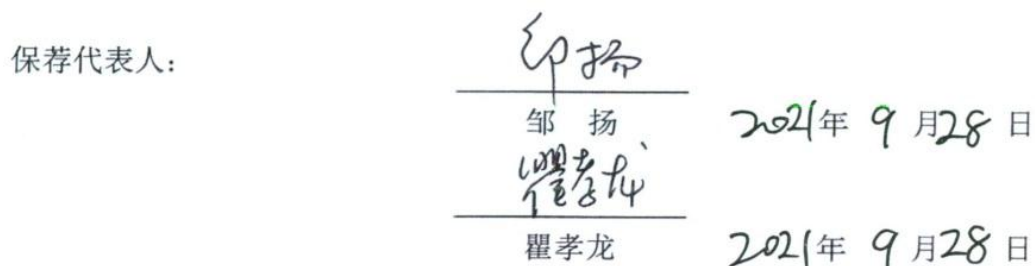 保荐代表人：
邹扬
邹 扬 2021年 9 月 28 日
瞿孝龙
瞿孝龙 2021年 9 月 28 日